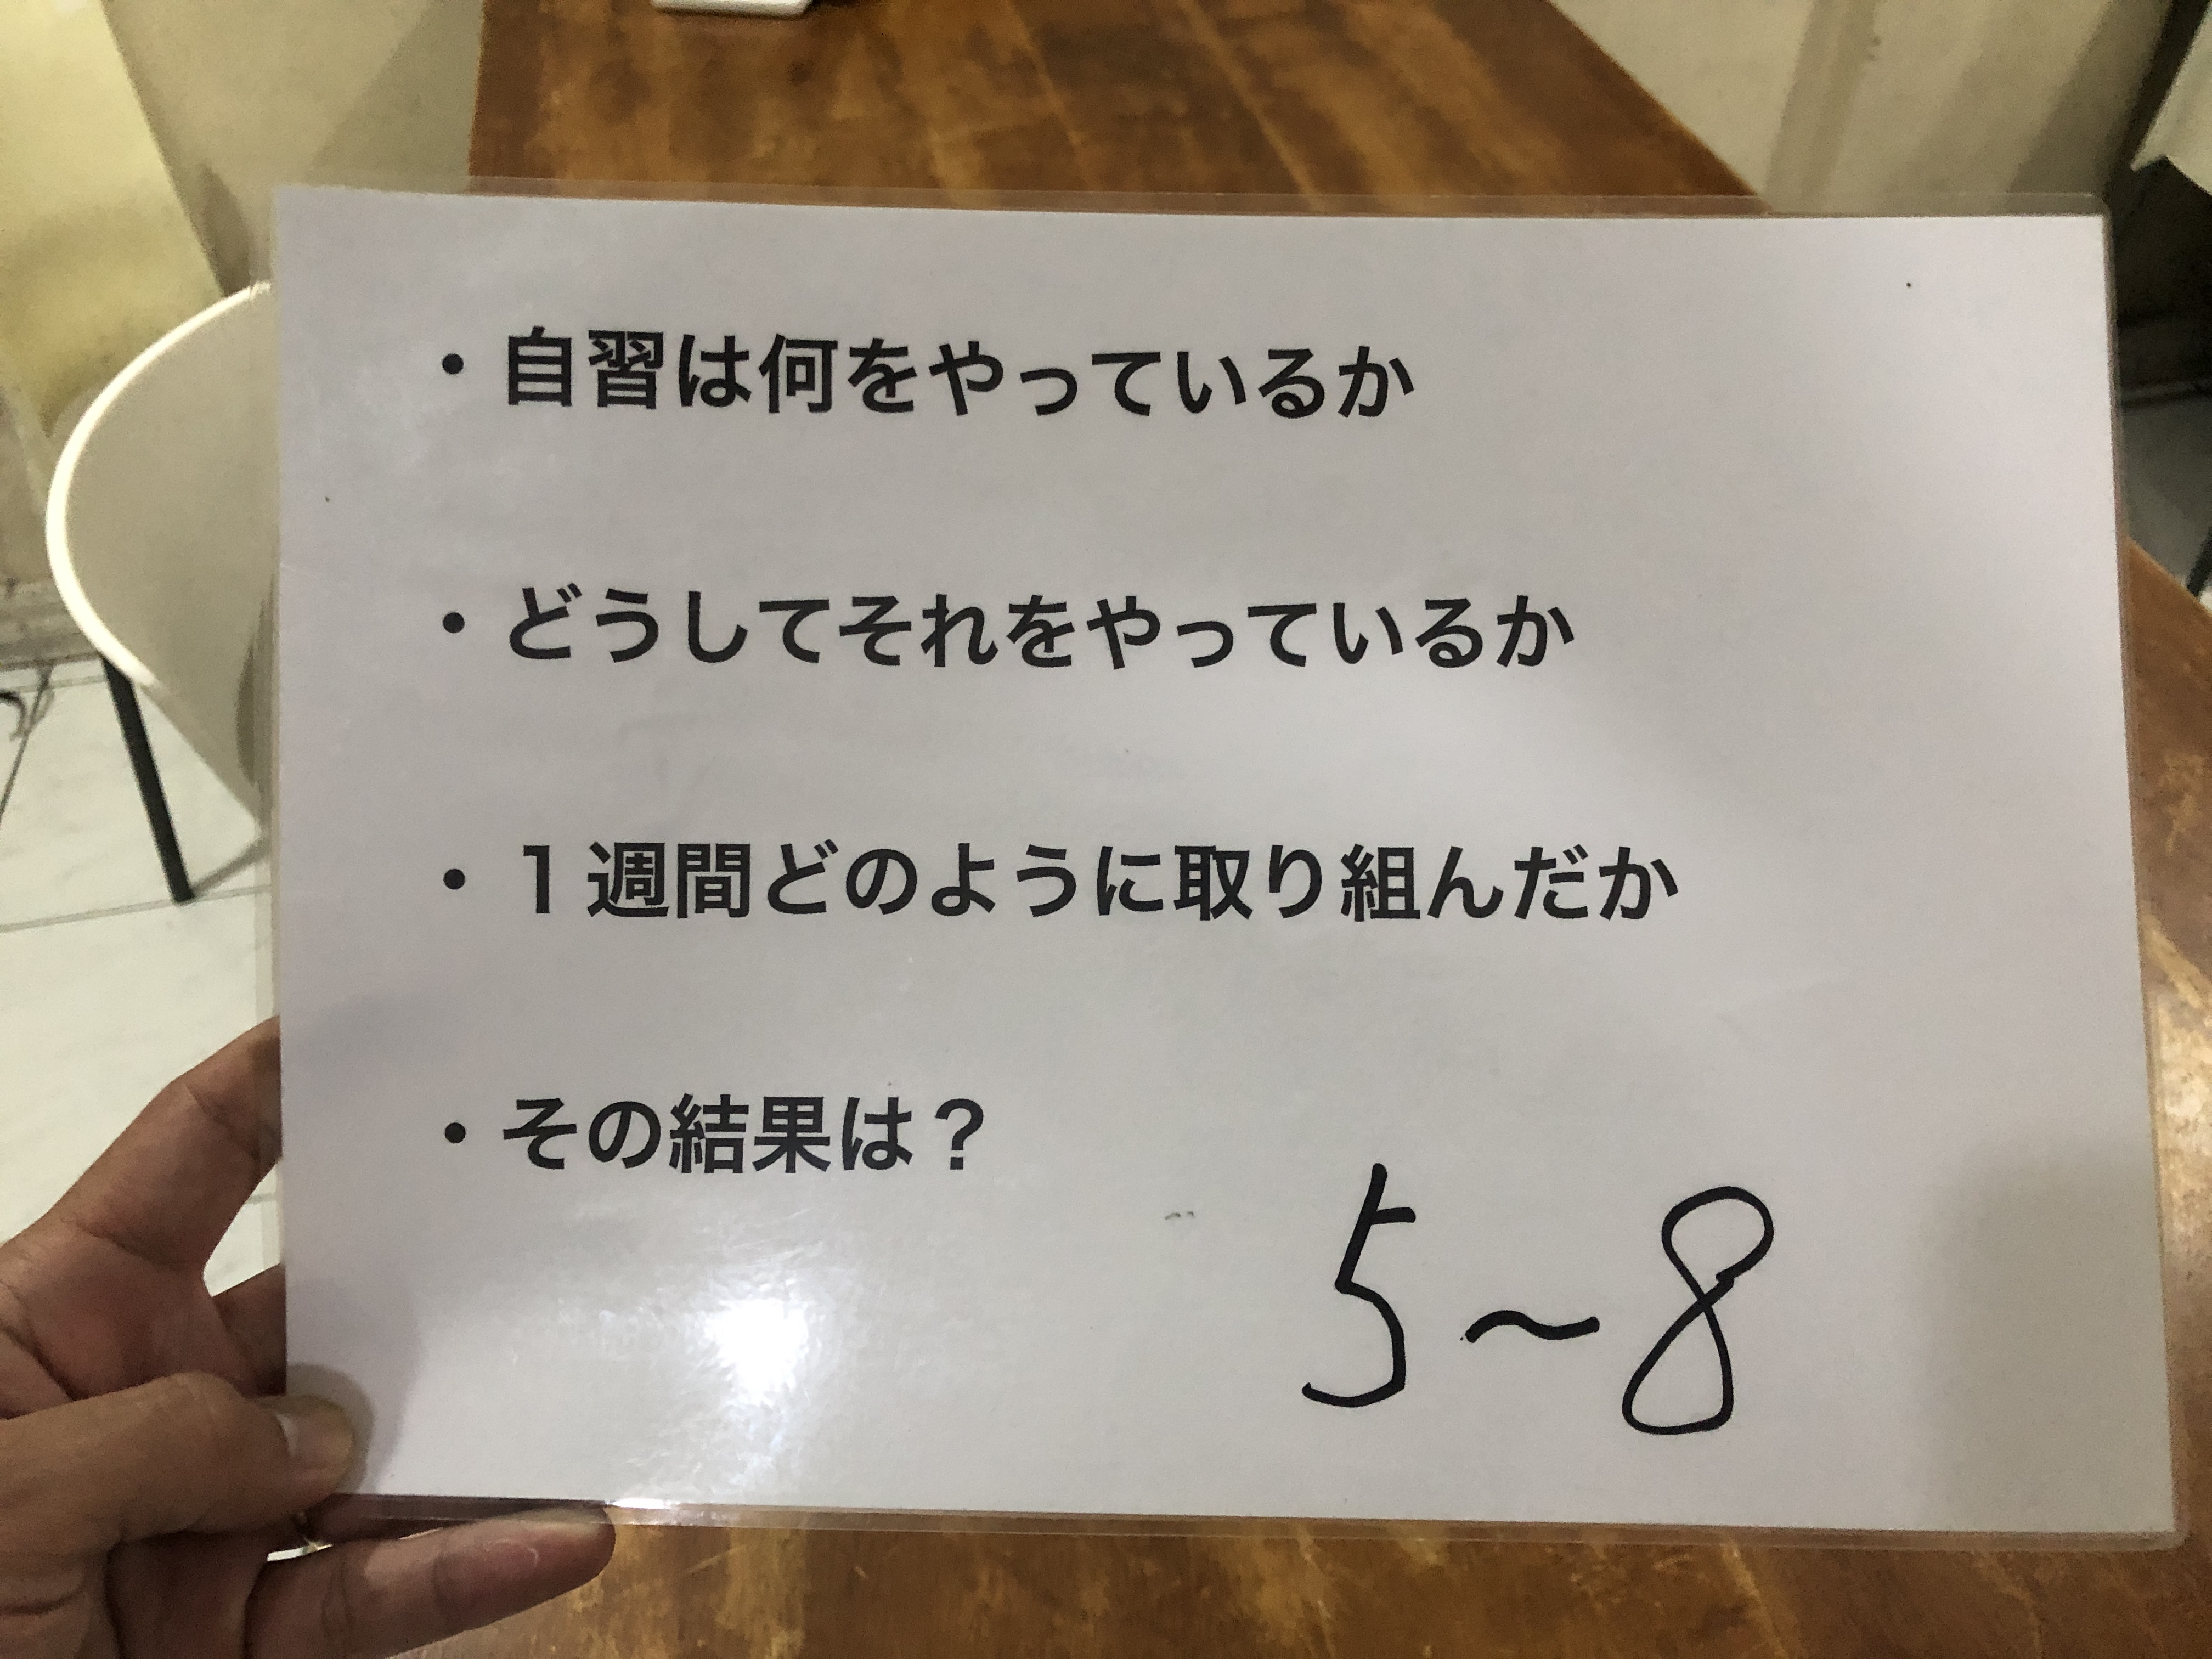 ・自習は何をやっているか
・どうしてそれをやっているか
・１週間どのように取り組んだか
・その結果は？
5~8